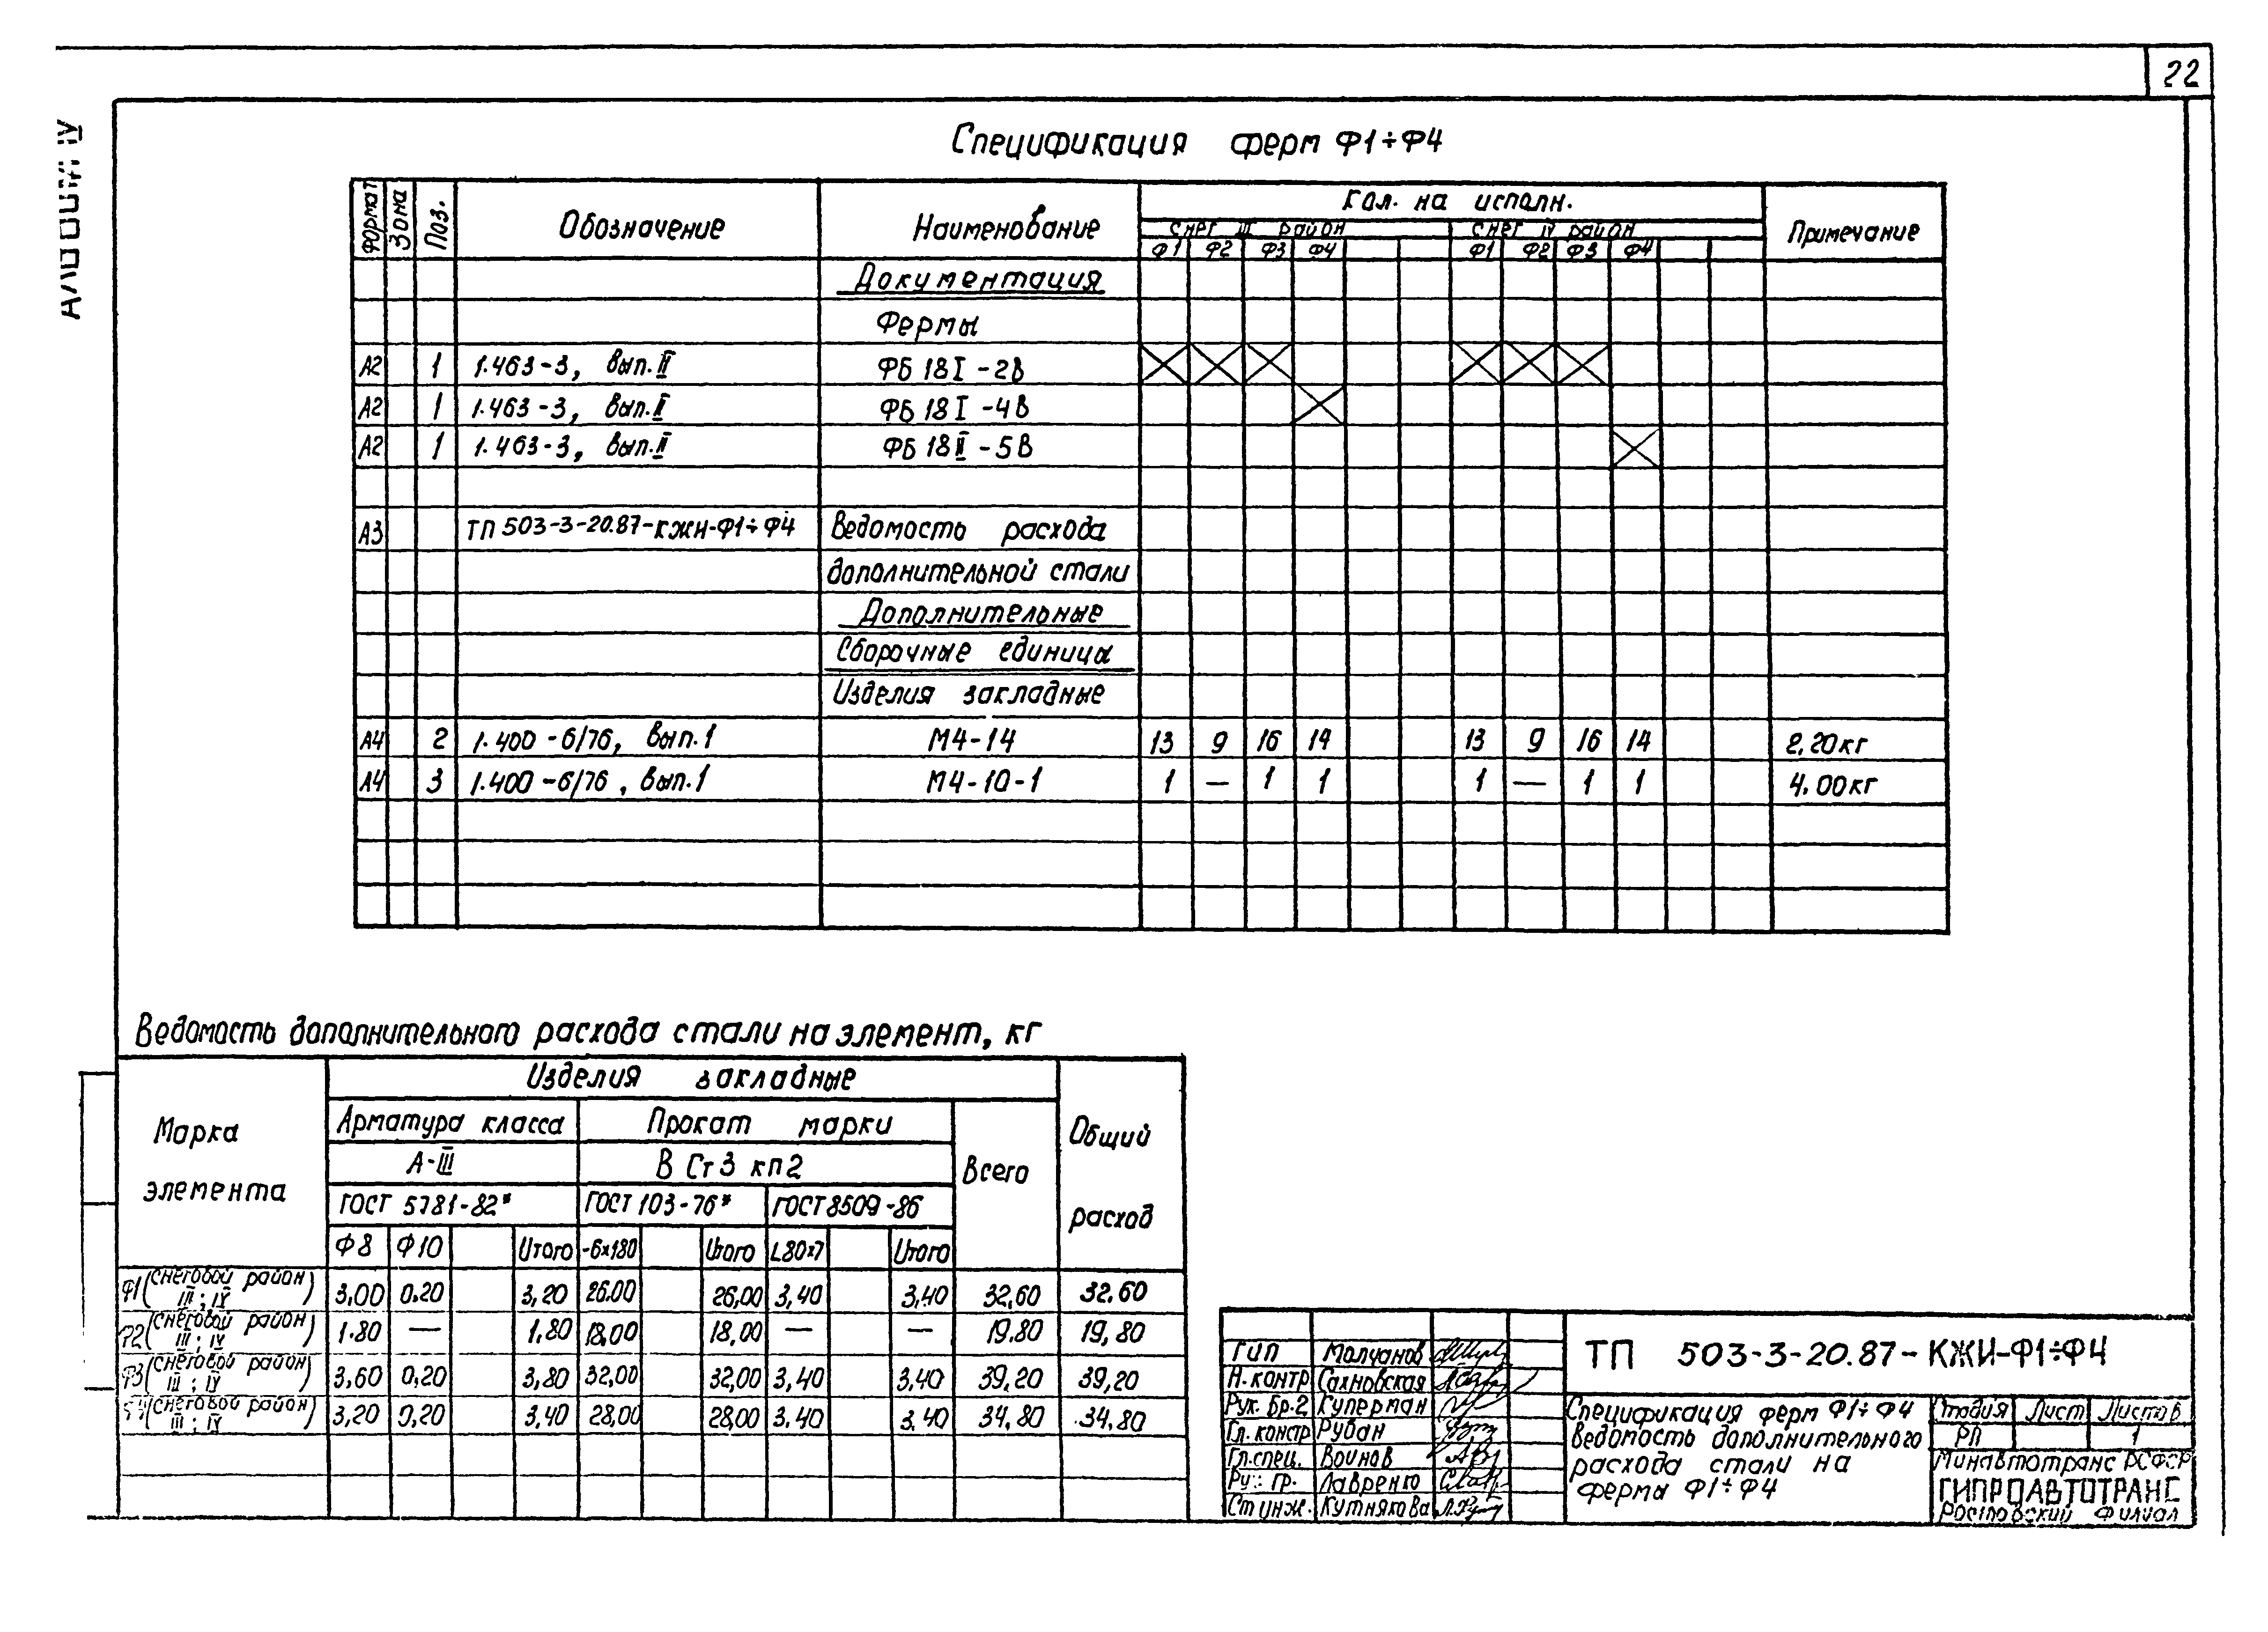 22
Альбом IV
Спецификация ферм Ф1÷Ф4
Формат Зона Поз. Обозначение Наименование Кол. на исполн. Примечание
Снег III район Снег IV район
Ф1 Ф2 Ф3 Ф4 Ф1 Ф2 Ф3 Ф4
Документация
Фермы
А2 1 1.463-3, вып. II ФБ 18 I -2В
А2 1 1.463-3, вып. II ФБ 18 I -4В
А2 1 1.463-3, вып. II ФБ 18 II -5В
А3 ТП 503-3-20.87-КЖИ-Ф1÷Ф4 Ведомость расхода
дополнительной стали
Дополнительные
Сборочные единицы
Изделия закладные
А4 2 1.400-6/76, вып. 1 М4-14 13 9 16 14 13 9 16 14 2,20кг
А4 3 1.400-6/76, вып. 1 М4-10-1 1 — 1 1 1 — 1 1 4.00кг
Ведомость дополнительного расхода стали на элемент, кг
Марка элемента Изделия закладные Общий расход
Арматура класса Прокат марки Всего
А-III В Ст3 кп2
ГОСТ 5781-82* ГОСТ 103-76* ГОСТ 8509-86
Ф8 Ф10 Итого -6х180 Итого L80х7 Итого
Ф1 (снеговой район III; IV) 3,00 0,20 3,20 26.00 26,00 3,40 3,40 32,60 32.60
Ф2 (снеговой район III; IV) 1.80 — 1,80 18,00 18,00 — — 19.80 19,80
Ф3 (снеговой район III; IV) 3,60 0,20 3,80 32,00 32,00 3,40 3,40 39,20 39,20
(снеговой район III; IV) 3,20 0,20 3,40 28,00 28,00 3,40 3,40 34,80 34,80
ГИП Молчанов
Н.контр Сахновская
Рук. бр.2 Куперман
Гл. констр Рубан
Гл.спец. Воинов
Рук. гр. Лавренко
Ст инж. Кутнякова
ТП 503-3-20.87-КЖИ-Ф1÷Ф4
Спецификация ферм Ф1÷Ф4
Ведомость дополнительного
расхода стали на
фермы Ф1÷Ф4
Стадия Лист Листов
РП 1
Минавтотранс РСФСР
ГИПРОАВТОТРАНС
Ростовский филиал